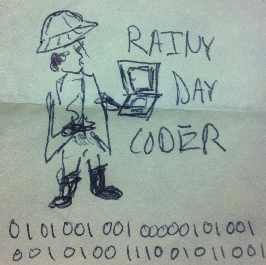 RAINY
DAY
CODER
0101001 001 00000101001
001 0100 1110 01011001